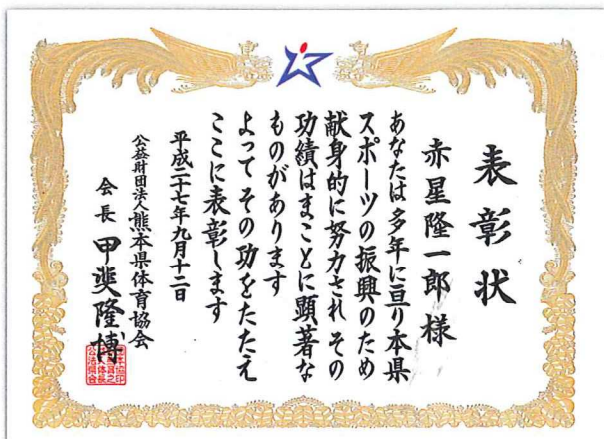 表彰状
赤星隆一郎様
あなたは多年に亘り本県
スポーツの振興のため
献身的に努力され その
功績はまことに顕著な
ものがあります
よってその功をたたえ
ここに表彰します
平成二十七年九月十二日
公益財団法人熊本県体育協会
会長 甲斐隆博